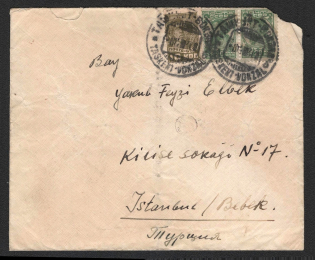 Bay
Yakub Feyzi Elbek
Kilise sokağı No 17.
Istanbul / Bebek.
Турция